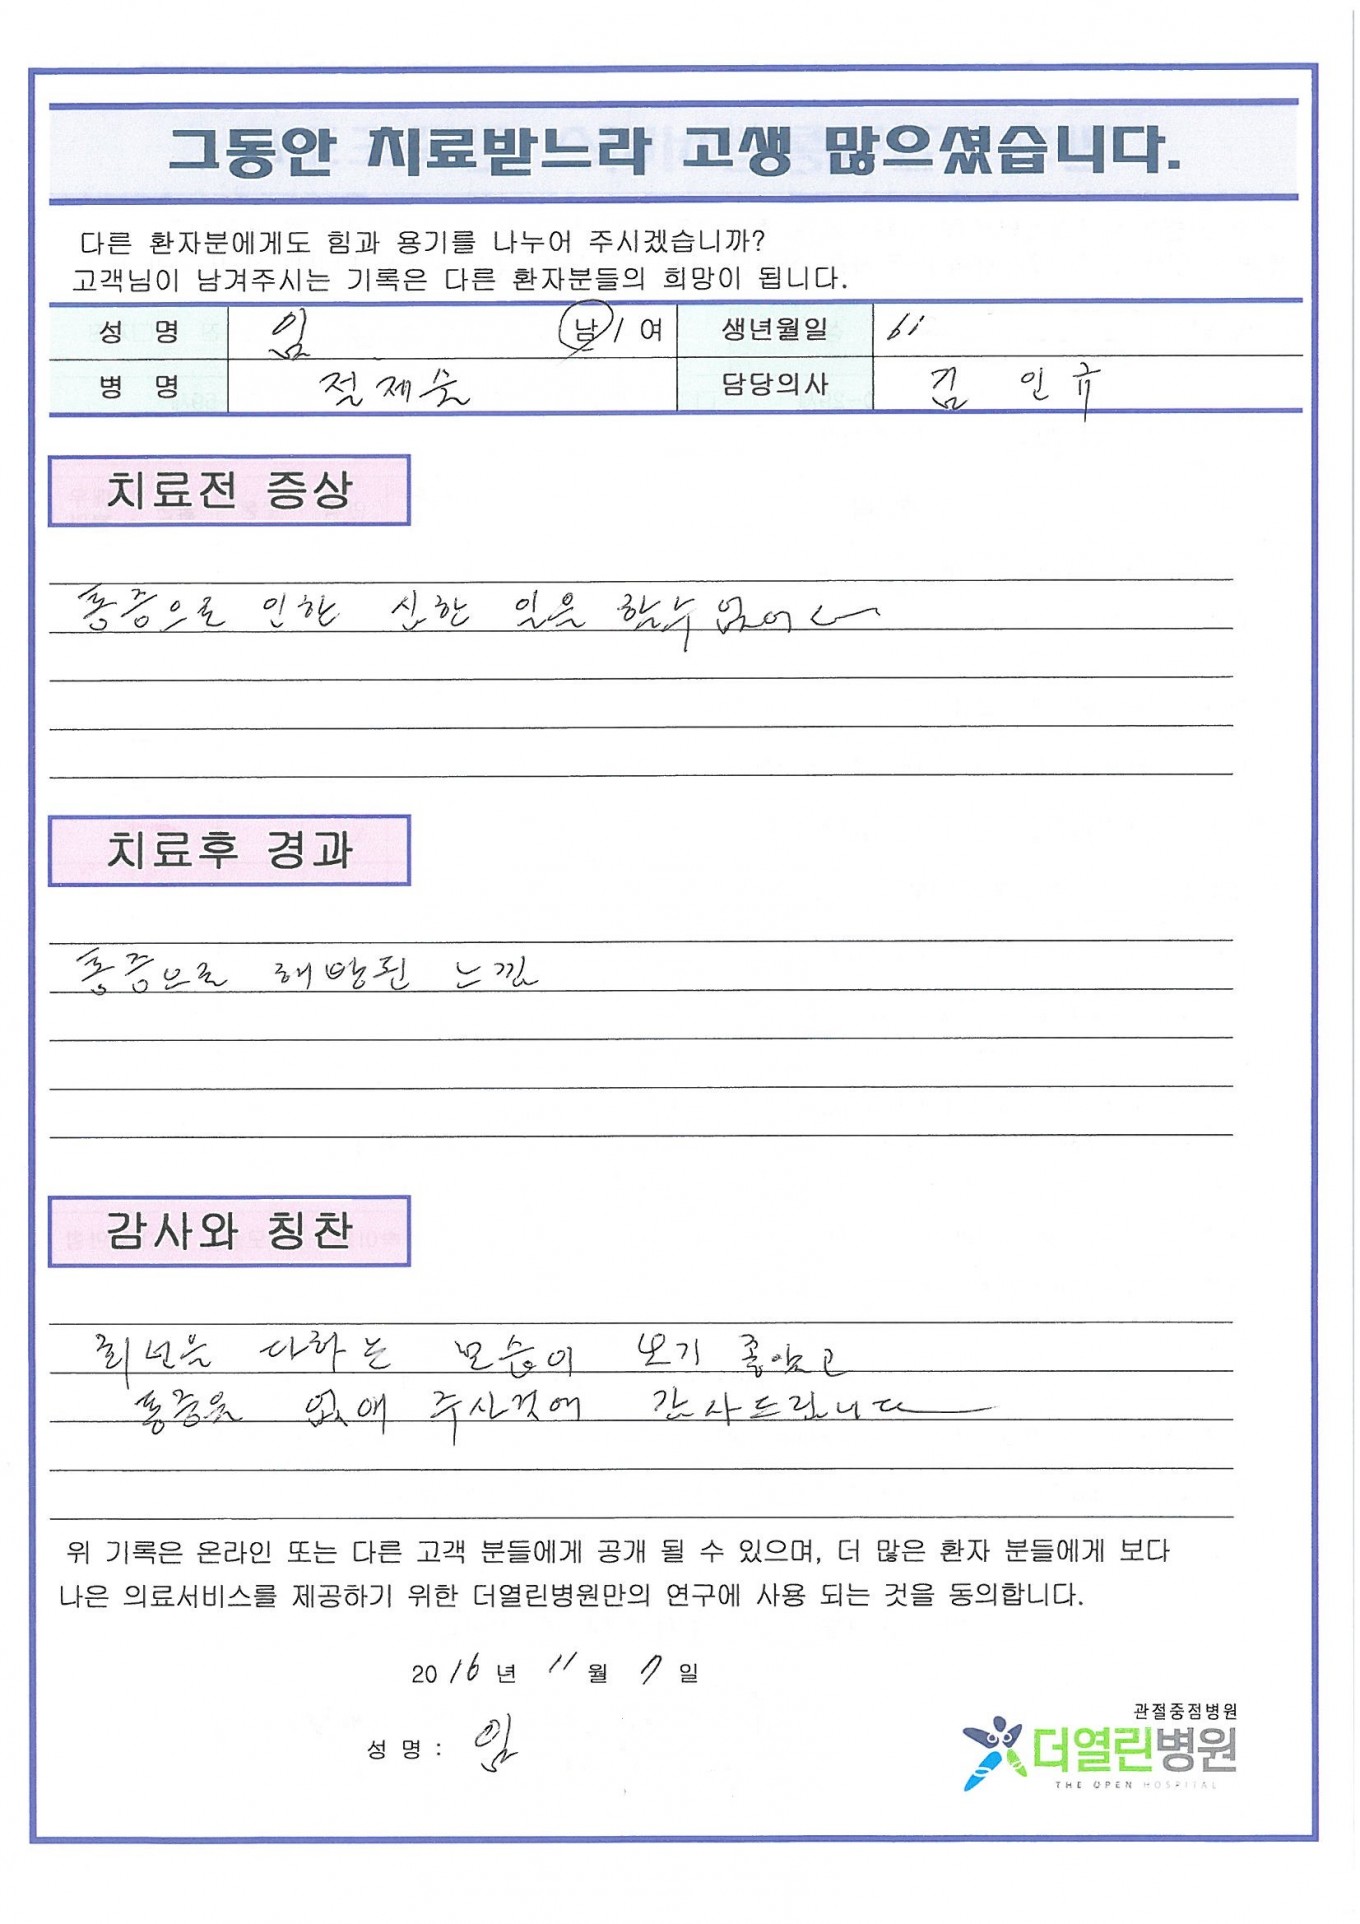 그동안 치료받느라 고생 많으셨습니다.
다른 환자분에게도 힘과 용기를 나누어 주시겠습니까?
고객님이 남겨주시는 기록은 다른 환자분들의 희망이 됩니다.
성 명 임 남 / 여 생년월일 61
병 명 절제술 담당의사 김 인규
치료전 증상
통증으로 인한 심한 일을 할수 없어
치료후 경과
통증으로 해방된 느낌
감사와 칭찬
최선을 다하는 모습이 보기 좋았고
통증을 없애 주신것에 감사드립니다
위 기록은 온라인 또는 다른 고객 분들에게 공개 될 수 있으며, 더 많은 환자 분들에게 보다
나은 의료서비스를 제공하기 위한 더열린병원만의 연구에 사용 되는 것을 동의합니다.
2016 년 11 월 7 일
성 명 : 임
관절중점병원
더열린병원
THE OPEN HOSPITAL